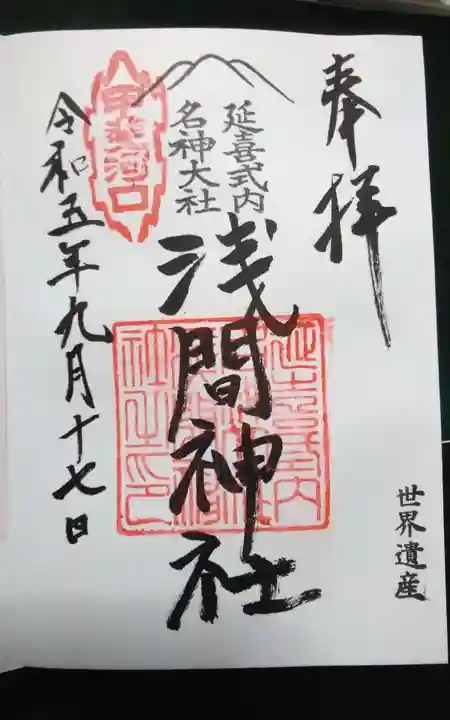 奉拝
延喜式内
名神大社
浅間神社
甲斐河口
令和五年九月十七日
世界遺産